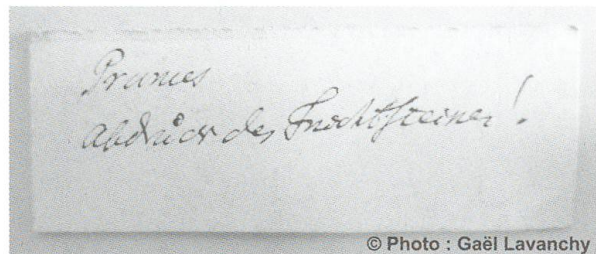 Prunus
Abdruck des Fruchtsteines!
© Photo : Gaël Lavanchy